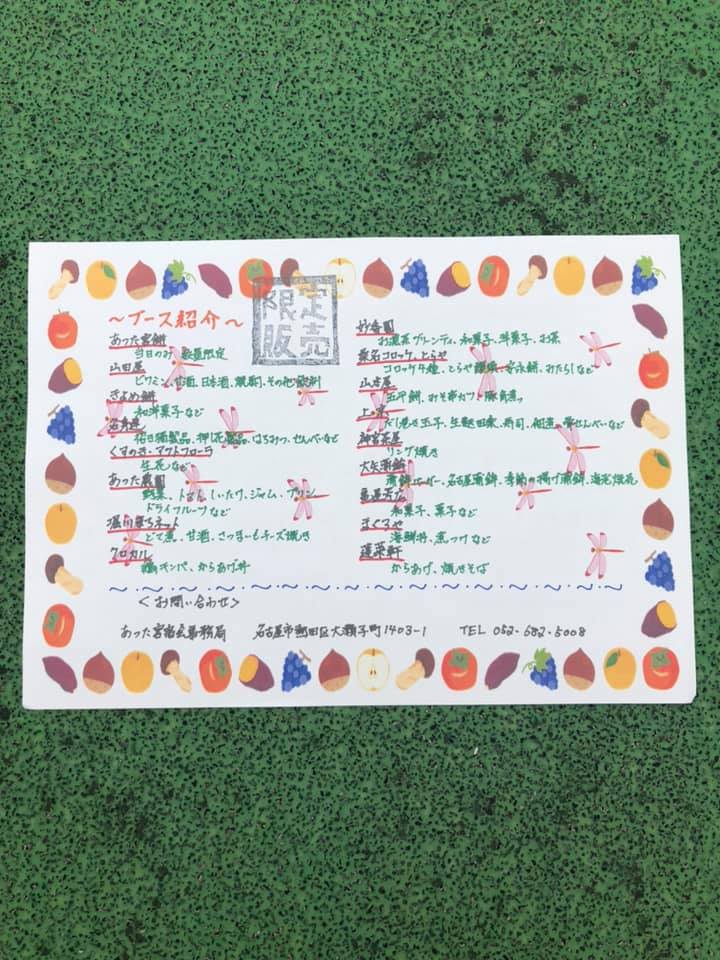 ～ブース紹介～
限定
販売
あった宮餅
当日のみ 数量限定
山田屋
甘酒、日本酒、その他飲料
きよめ餅
和洋菓子など
はちみつ、せんべいなど
くすのき・アウトフローラ
生花など
あった農園
野菜、トマト、しいたけ、ジャム、プリン、
ドライフルーツなど
堀川まちネット
どて煮、甘酒、さつまいもチーズ焼き
クロカル
キンパ、からあげ丼
妙香園
お抹茶グリーンティ、和菓子、洋菓子、お茶
桑名コロッケ、とらや
コロッケ4種、とらや饅頭、安永餅、みたらしなど
五平餅、みそ串カツ、豚角煮
だし巻き玉子、生麩田楽、寿司、佃煮、せんべいなど
神宮茶屋
リング焼き
大矢蒲鉾
名古屋蒲鉾、季節の揚げ蒲鉾、海老焼売
亀屋芳広
和菓子、菓子など
まぐろや
海鮮丼、煮つけなど
蓬莱軒
からあげ、焼きそば
＜お問い合わせ＞
あった宮宿会事務局 名古屋市熱田区大瀬子町1403-1 TEL 052-682-5008